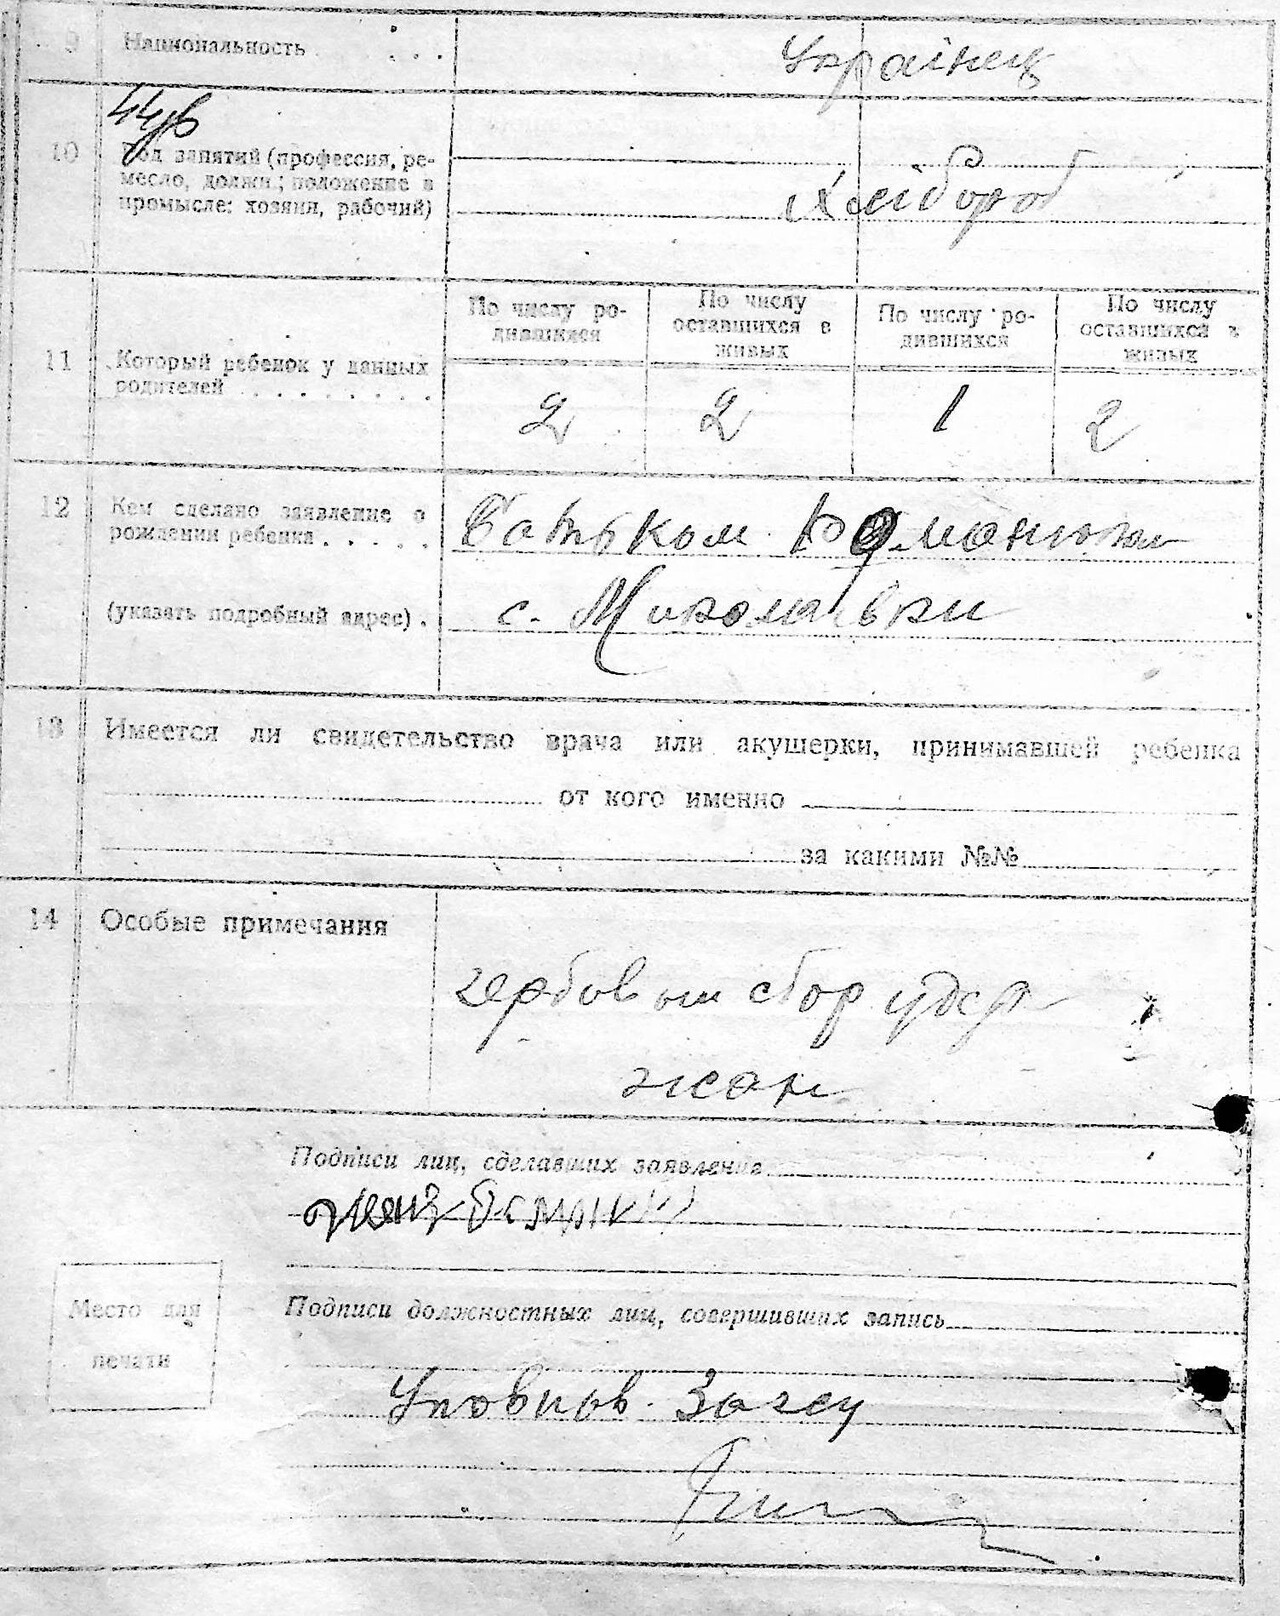 9 Национальность . . .
Українец
44
10 Род занятий (профессия, ре-
месло, должн.; положение в
промысле: хозяин, рабочий)
Хлібороб
11 Который ребенок у данных
родителей . . . . . . . .
По числу ро-
дившихся
По числу
оставшихся в
живых
По числу ро-
дившихся
По числу
оставшихся в
живых
2 2 1 2
12 Кем сделано заявление о
рождении ребенка . . . . .
(указать подробный адрес) .
Батьком Романюком
с. Миколаївки
13 Имеется ли свидетельство врача или акушерки, принимавшей ребенка
от кого именно
за какими №№
14 Особые примечания
гербовый сбор удер
жан
Подписи лиц, сделавших заявление
Место для
печати
Подписи должностных лиц, совершивших запись
Уповнов. Загсу